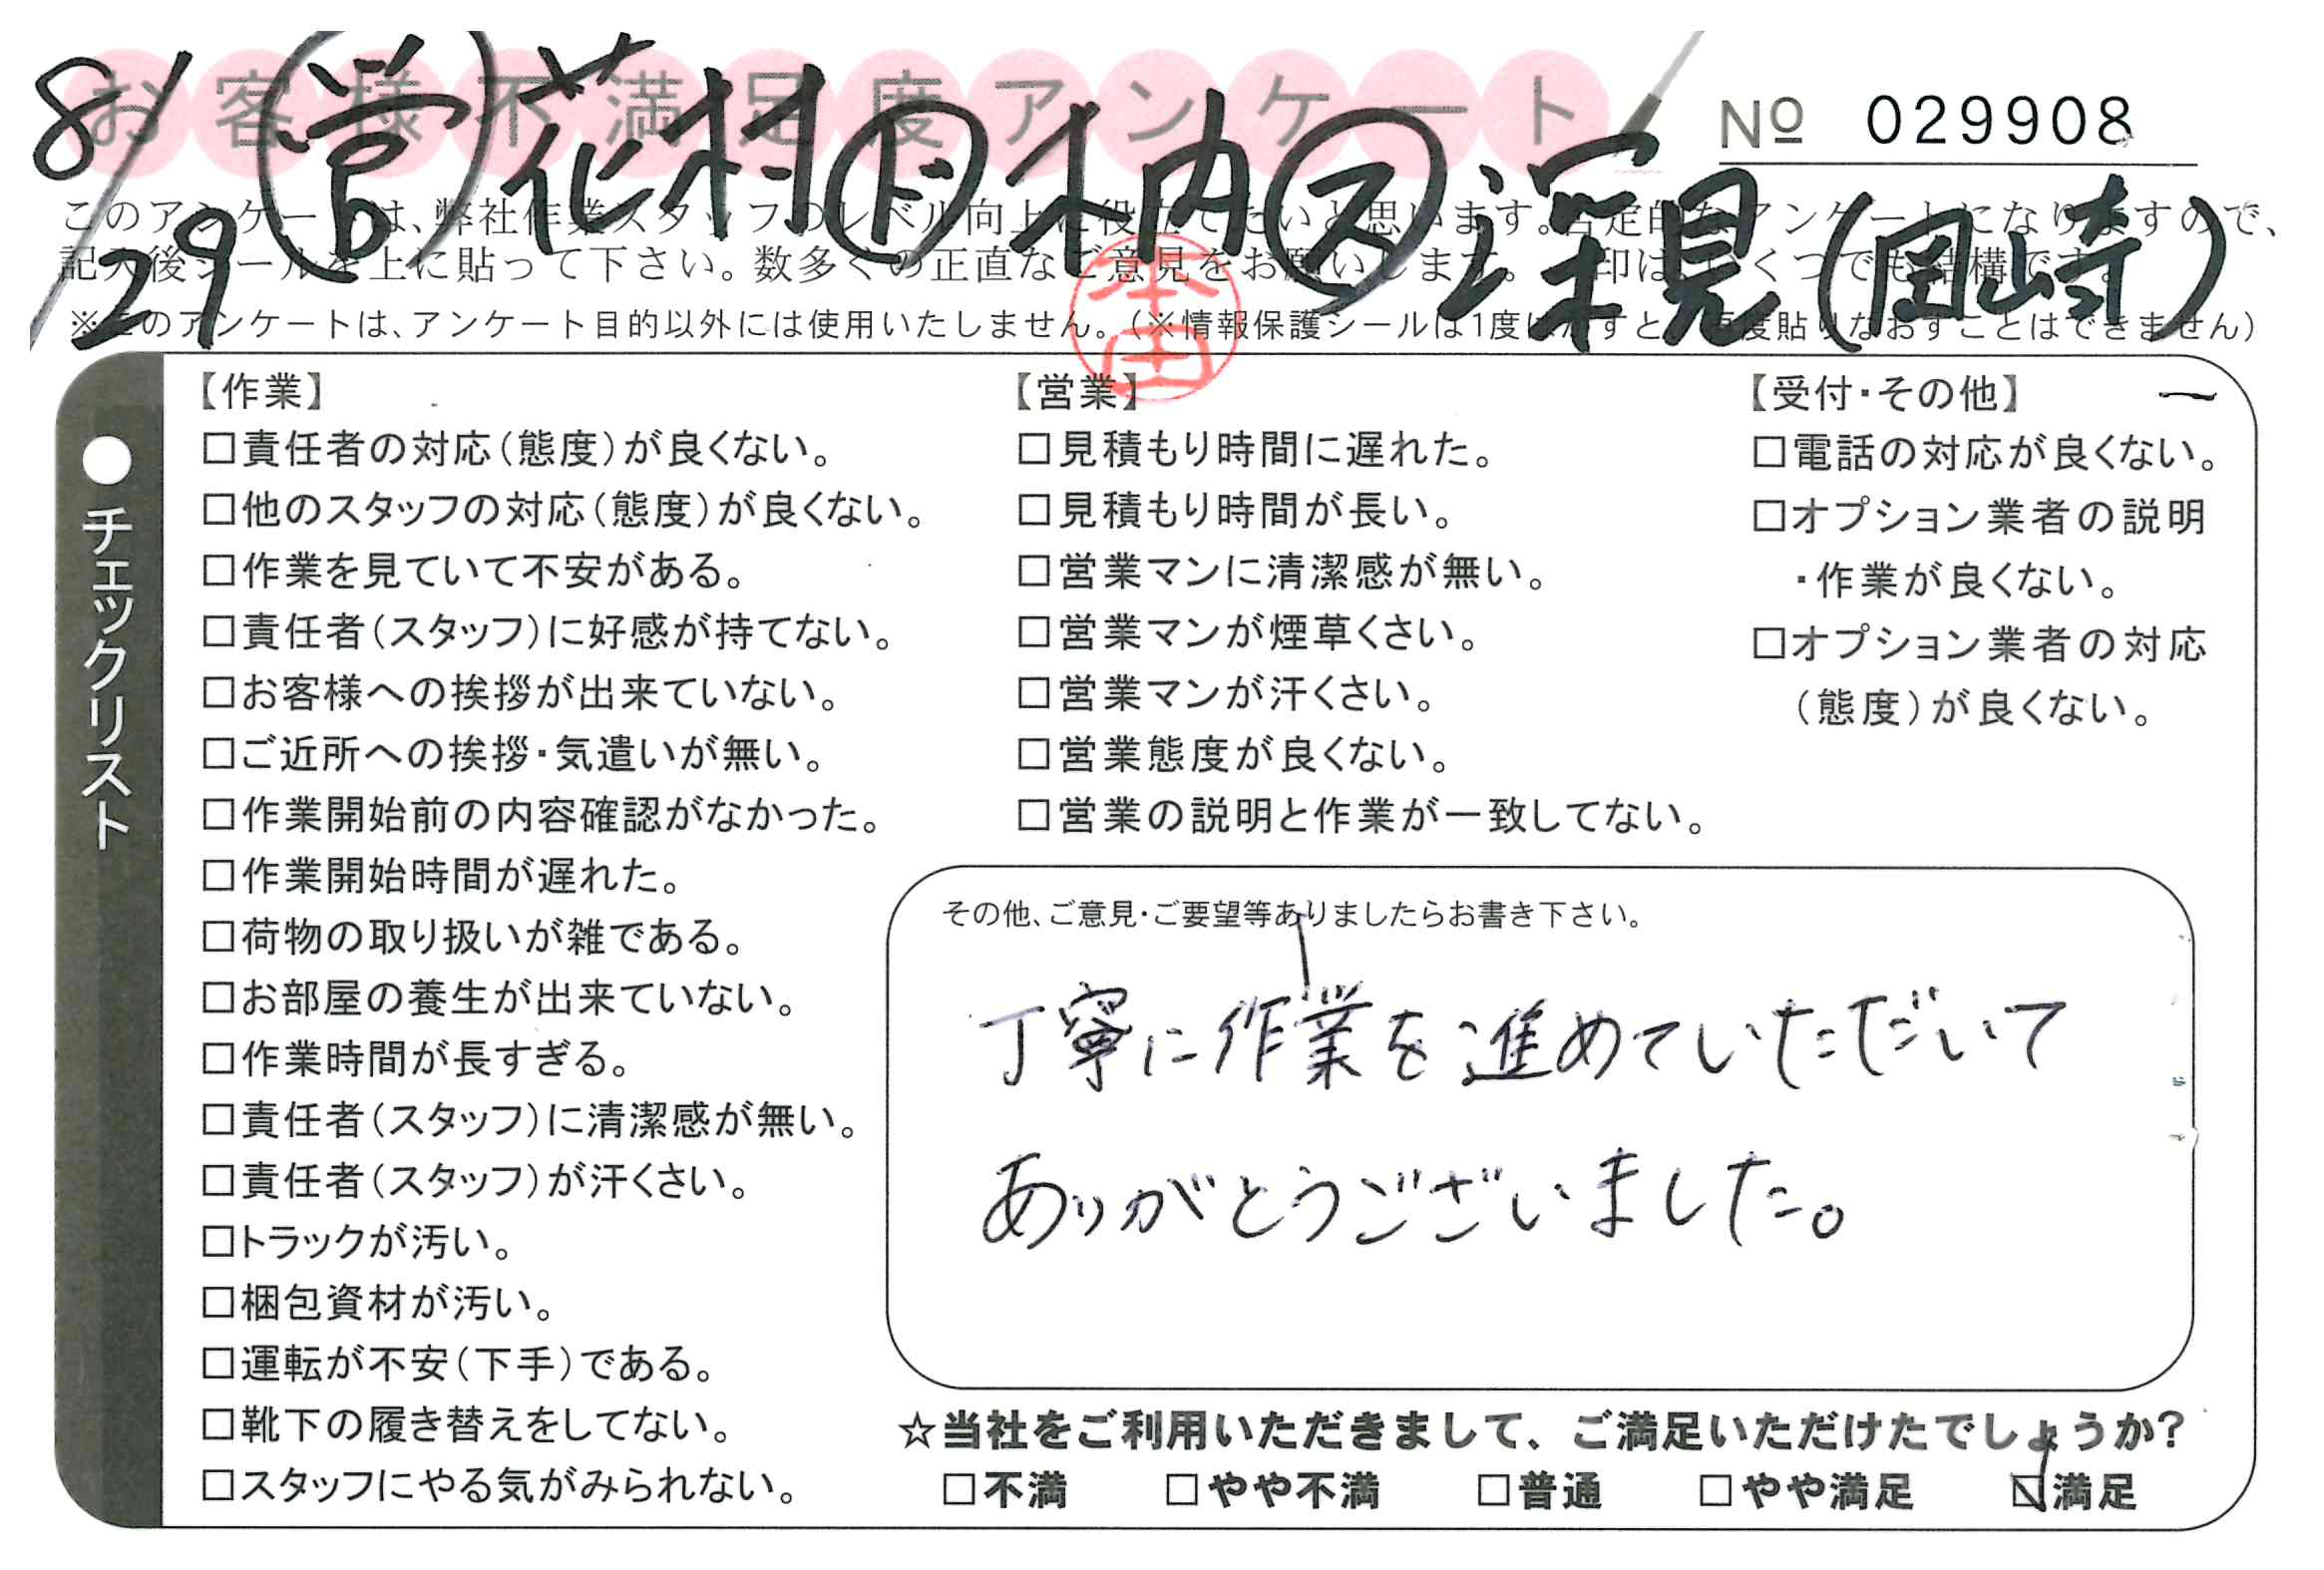 お客様不満足度アンケート
№ 029908
8/29 営 花村 ド 木内 ス 深見(岡崎)
このアンケートは、弊社作業スタッフのレベル向上に役立てたいと思います。否定的なアンケートになりますので、
記入後シールを上に貼って下さい。数多くの正直なご意見をお願いします。 印はいくつでも結構です。
※このアンケートは、アンケート目的以外には使用いたしません。(※情報保護シールは1度はがすと、再度貼りなおすことはできません)
本田
●チェックリスト
【作業】
□責任者の対応(態度)が良くない。
□他のスタッフの対応(態度)が良くない。
□作業を見ていて不安がある。
□責任者(スタッフ)に好感が持てない。
□お客様への挨拶が出来ていない。
□ご近所への挨拶・気遣いが無い。
□作業開始前の内容確認がなかった。
□作業開始時間が遅れた。
□荷物の取り扱いが雑である。
□お部屋の養生が出来ていない。
□作業時間が長すぎる。
□責任者(スタッフ)に清潔感が無い。
□責任者(スタッフ)が汗くさい。
□トラックが汚い。
□梱包資材が汚い。
□運転が不安(下手)である。
□靴下の履き替えをしてない。
□スタッフにやる気がみられない。
【営業】
□見積もり時間に遅れた。
□見積もり時間が長い。
□営業マンに清潔感が無い。
□営業マンが煙草くさい。
□営業マンが汗くさい。
□営業態度が良くない。
□営業の説明と作業が一致してない。
【受付・その他】
□電話の対応が良くない。
□オプション業者の説明
・作業が良くない。
□オプション業者の対応
(態度)が良くない。
その他、ご意見・ご要望等ありましたらお書き下さい。
丁寧に作業を進めていただいて
ありがとうございました。
☆当社をご利用いただきまして、ご満足いただけたでしょうか?
□不満 □やや不満 □普通 □やや満足 ☑満足